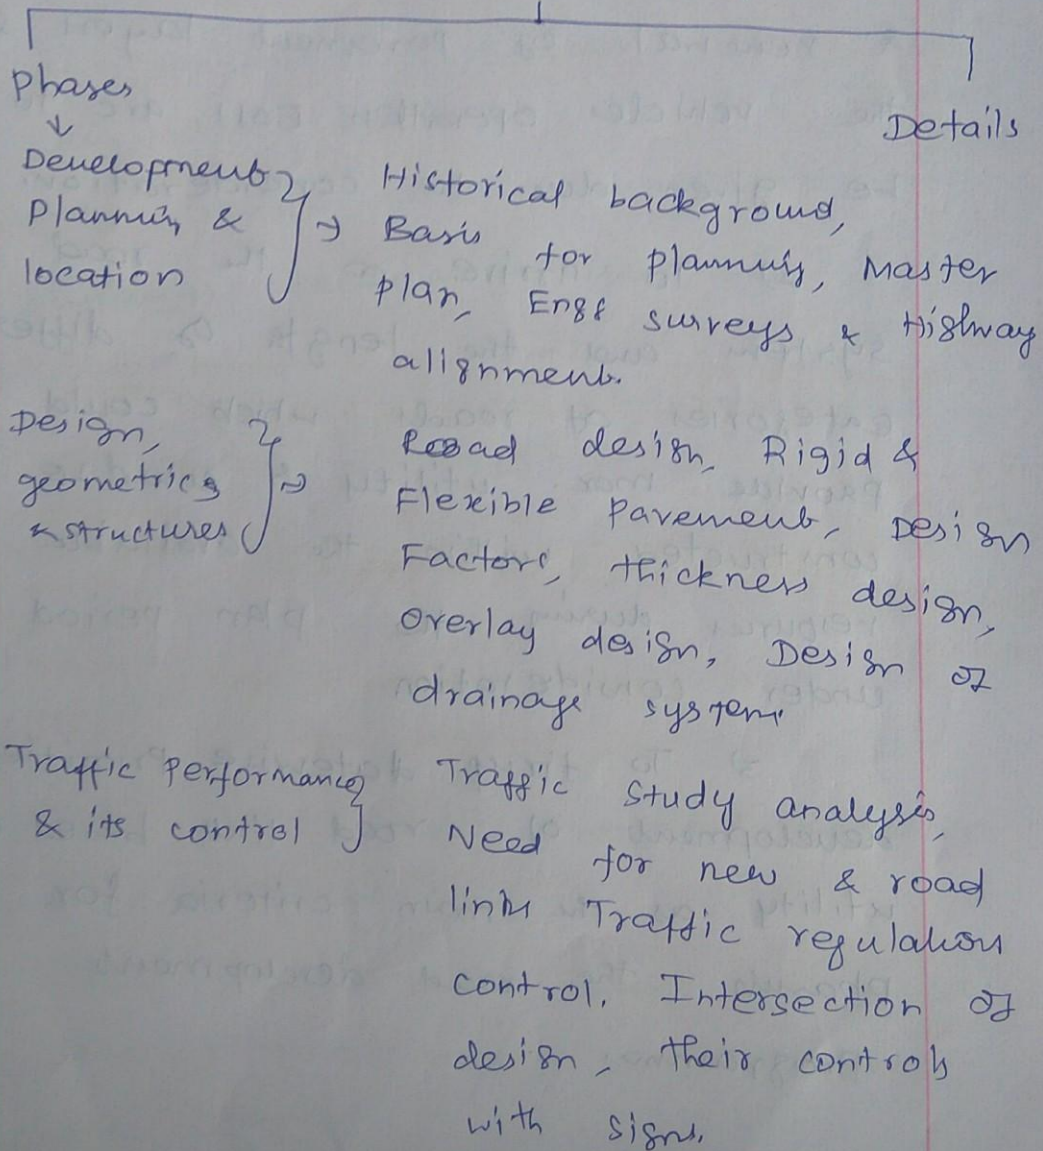 Phases
Details
Development
Planning &
location
Historical background,
Basis for planning, Master
plan, Engg surveys & Highway
alignment.
Design,
geometrics
& structures
Road design, Rigid &
Flexible Pavement, Design
Factors, thickness design,
Overlay design, Design of
drainage system.
Traffic Performance
& its control
Traffic Study analysis,
Need for new & road
links Traffic regulation
control. Intersection of
design, their controls
with signs.